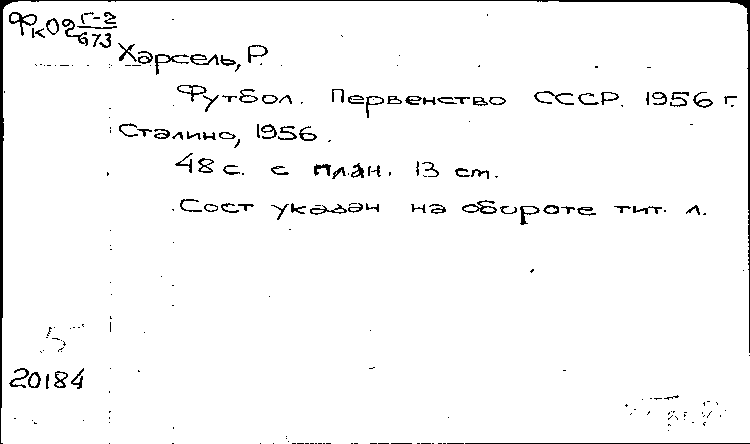 Фк02 Г-2/673
Харсель, Р.
Футбол. Первенство СССР. 1956 г.
Сталино, 1956.
48 с. с план. 13 см.
Сост указан на обороте тит. л.
5
20184